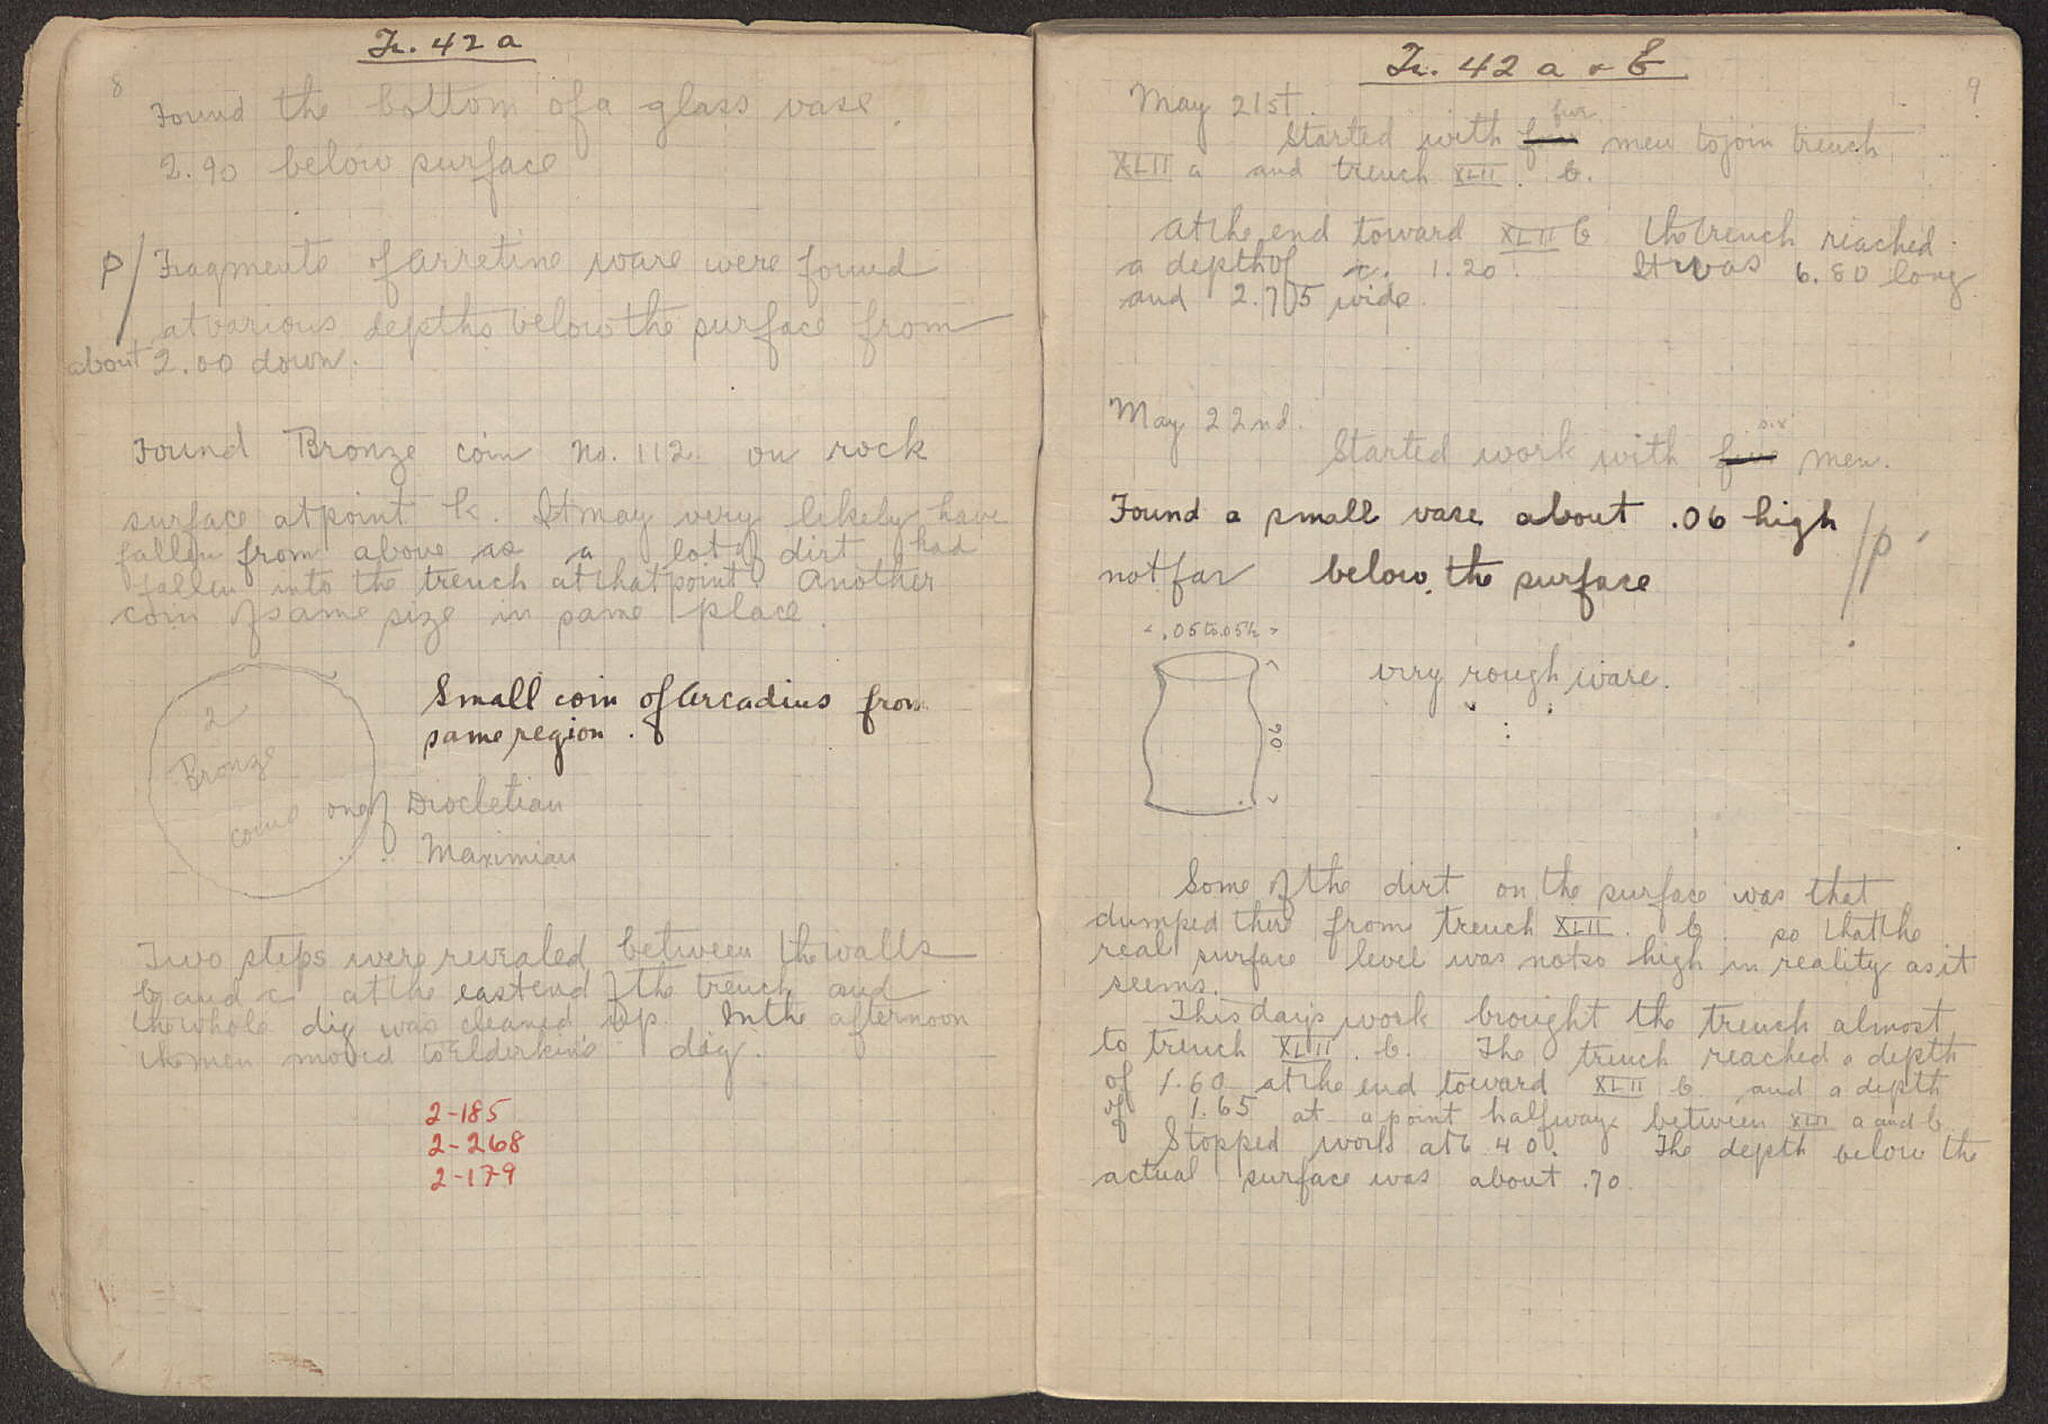 8
Tr. 42 a
Found the bottom of a glass vase.
2.90 below surface
P/ Fragments of Arretine ware were found
at various depths below the surface from
about 2.00 down.
Found Bronze coin No. 112 on rock
surface at point K. It may very likely have
fallen from above as a lot of dirt had
fallen into the trench at that point. Another
coin of same size in same place.
Small coin of Arcadius from
same region.
2
Bronze
coins one of Diocletian
" " Maximian
Two steps were revealed between the walls
b and c at the east end of the trench and
the whole dig was cleaned up. In the afternoon
the men moved to Elderkin's dig.
2-185
2-268
2-179
9
Tr. 42 a & b
May 21st.
Started with four men to join trench
XLII a and trench XLII. b.
At the end toward XLII b the trench reached
a depth of c. 1.20. It was 6.80 long
and 2.75 wide.
May 22nd.
six
Started work with five men.
Found a small vase about .06 high /P
not far below the surface
.05 to .05½
very rough ware.
.06
Some of the dirt on the surface was that
dumped there from trench XLII. b. so that the
real surface level was not so high in reality as it
seems.
This day's work brought the trench almost
to trench XLII. b. The trench reached a depth
of 1.60 at the end toward XLII b and a depth
of 1.65 at a point halfway between XLII a and b
Stopped work at 6.40. The depth below the
actual surface was about .70.